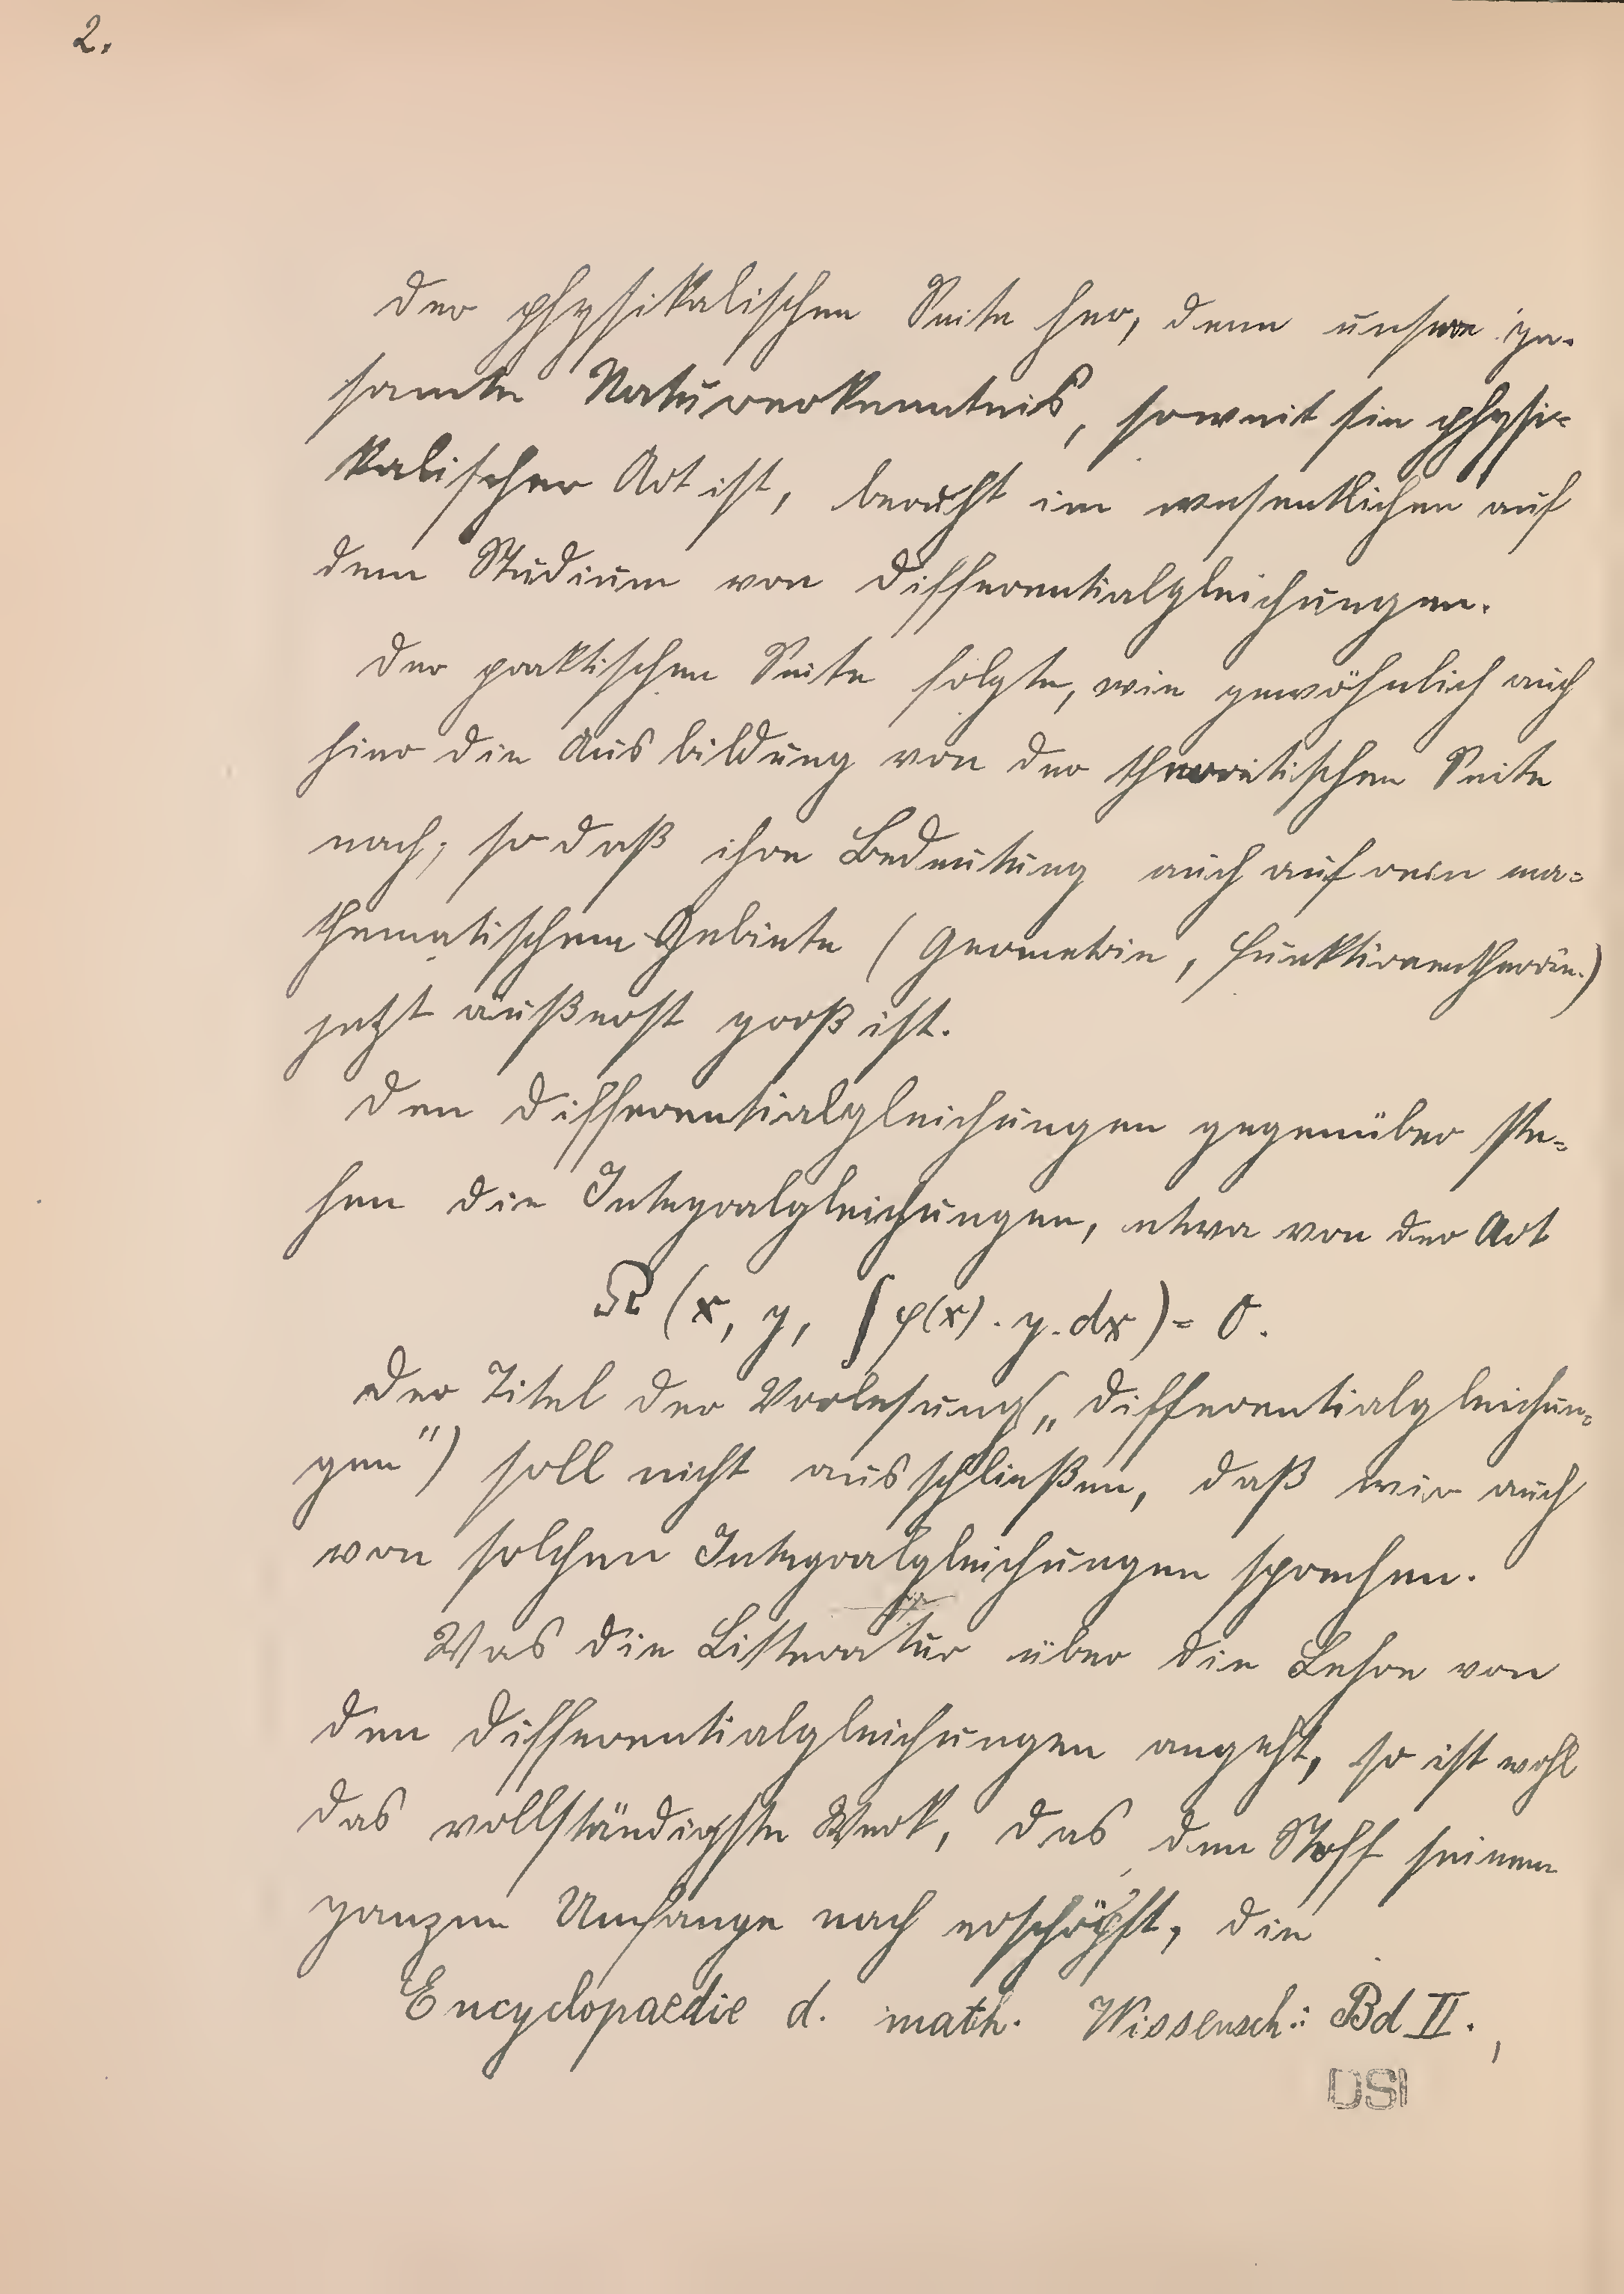 2.
der physikalischen Seite her, denn unsere ge-
samte Naturerkenntnis, soweit sie physi-
kalischer Art ist, beruht im wesentlichen auf
dem Studium von Differentialgleichungen.
Der praktischen Seite folgte, wie gewöhnlich auch
hier die Ausbildung von der theoretischen Seite
nach, so daß ihre Bedeutung auch auf rein ma-
thematischem Gebiete (Geometrie, Funktionentheorie.)
jetzt äußerst groß ist.
Den Differentialgleichungen gegenüber ste-
hen die Integralgleichungen, etwa von der Art
Ω (x, y, ∫ φ(x) . y. dx) = 0.
Der Titel der Vorlesung („Differentialgleichun-
gen") soll nicht ausschließen, daß wir auch
von solchen Integralgleichungen sprechen.
Was die Litteratur über die Lehre von
den Differentialgleichungen angeht, so ist wohl
das vollständigste Werk, das den Stoff seinem
ganzen Umfange nach erschöpft, die
Encyclopaedie d. math. Wissensch.: Bd II.,
DSI